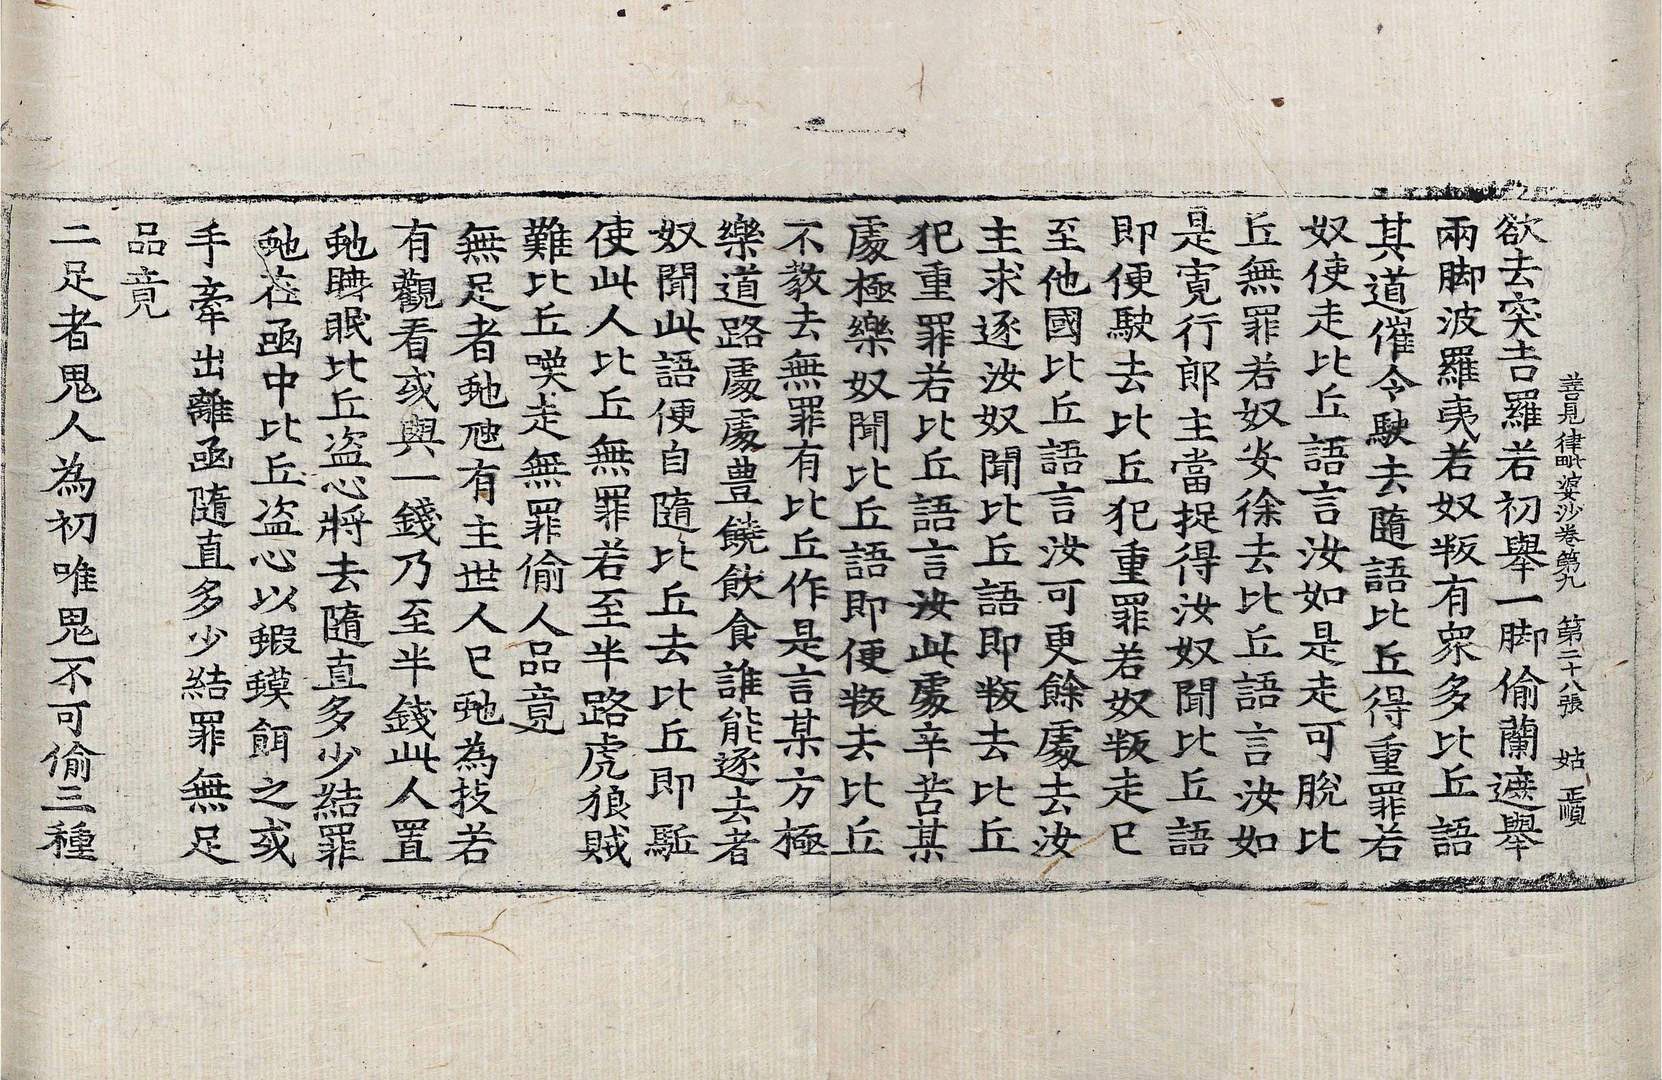 善見律毗婆沙卷第九　第二十八張　姑　正順
欲去突吉羅若初舉一脚偷蘭遮舉
兩脚波羅夷若奴叛有衆多比丘語
其道催令駛去隨語比丘得重罪若
奴使走比丘語言汝如是走可脫比
丘無罪若奴安徐去比丘語言汝如
是寬行郎主當捉得汝奴聞比丘語
即便駛去比丘犯重罪若奴叛走已
至他國比丘語言汝可更餘處去汝
主求逐汝奴聞比丘語即叛去比丘
犯重罪若比丘語言汝此處辛苦某
處極樂奴聞比丘語即便叛去比丘
不教去無罪有比丘作是言某方極
樂道路處處豊饒飲食誰能逐去者
奴聞此語便自隨比丘去比丘即駈
使此人比丘無罪若至半路虎狼賊
難比丘喚走無罪偷人品竟
無足者虵虵有主世人巳虵為技若
有觀看或與一錢乃至半錢此人置
虵睡眠比丘盗心將去隨直多少結罪
虵在凾中比丘盗心以蝦蟆餌之或
手牽出離凾隨直多少結罪無足
品竟
二足者鬼人為初唯鬼不可偷三種